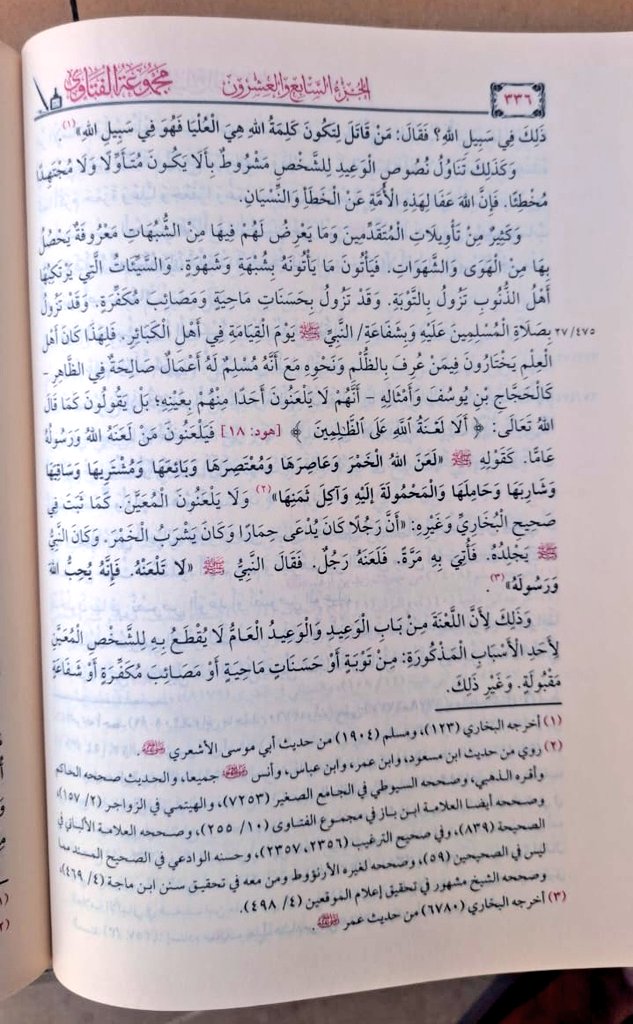 ٣٣٦ الجزء السابع والعشرون مجموعة الفتاوى
ذَلِكَ فِي سَبِيلِ اللهِ؟ فَقَالَ: مَنْ قَاتَلَ لِتَكُونَ كَلِمَةُ اللهِ هِيَ الْعُلْيَا فَهُوَ فِي سَبِيلِ اللهِ»(١).
وَكَذَلِكَ تَنَاوُلُ نُصُوصِ الْوَعِيدِ لِلشَّخْصِ مَشْرُوطٌ بِأَلَا يَكُونَ مُتَأَوِّلًا وَلَا مُجْتَهِدًا
مُخْطِئًا. فَإِنَّ اللهَ عَفَا لِهَذِهِ الْأُمَّةِ عَنْ الْخَطَأِ وَالنِّسْيَانِ.
وَكَثِيرٌ مِنْ تَأْوِيلَاتِ الْمُتَقَدِّمِينَ وَمَا يَعْرِضُ لَهُمْ فِيهَا مِنْ الشُّبُهَاتِ مَعْرُوفَةٌ يَحْصُلُ
بِهَا مِنْ الْهَوَى وَالشَّهَوَاتِ. فَيَأْتُونَ مَا يَأْتُونَهُ بِشُبْهَةٍ وَشَهْوَةٍ. وَالسَّيِّئَاتُ الَّتِي يَرْتَكِبُهَا
أَهْلُ الذُّنُوبِ تَزُولُ بِالتَّوْبَةِ. وَقَدْ تَزُولُ بِحَسَنَاتٍ مَاحِيَةٍ وَمَصَائِبَ مُكَفِّرَةٍ. وَقَدْ تَزُولُ
٢٧/٤٧٥ بِصَلَاةِ الْمُسْلِمِينَ عَلَيْهِ وَبِشَفَاعَةِ/ النَّبِيِّ ﷺ يَوْمَ الْقِيَامَةِ فِي أَهْلِ الْكَبَائِرِ. فَلِهَذَا كَانَ أَهْلُ
الْعِلْمِ يَخْتَارُونَ فِيمَنْ عُرِفَ بِالظُّلْمِ وَنَحْوِهِ مَعَ أَنَّهُ مُسْلِمٌ لَهُ أَعْمَالٌ صَالِحَةٌ فِي الظَّاهِرِ –
كَالْحَجَّاجِ بْنِ يُوسُفَ وَأَمْثَالِهِ – أَنَّهُمْ لَا يَلْعَنُونَ أَحَدًا مِنْهُمْ بِعَيْنِهِ؛ بَلْ يَقُولُونَ كَمَا قَالَ
اللهُ تَعَالَى: ﴿ أَلَا لَعْنَةُ ٱللَّهِ عَلَى ٱلظَّٰلِمِينَ ﴾ [هود: ١٨] فَيَلْعَنُونَ مَنْ لَعَنَهُ اللهُ وَرَسُولُهُ
عَامًّا. كَقَوْلِهِ ﷺ «لَعَنَ اللهُ الْخَمْرَ وَعَاصِرَهَا وَمُعْتَصِرَهَا وَبَائِعَهَا وَمُشْتَرِيهَا وَسَاقِيَهَا
وَشَارِبَهَا وَحَامِلَهَا وَالْمَحْمُولَةَ إلَيْهِ وَآكِلَ ثَمَنِهَا»(٢) وَلَا يَلْعَنُونَ الْمُعَيَّنَ. كَمَا ثَبَتَ فِي
صَحِيحِ الْبُخَارِيِّ وَغَيْرِهِ: «أَنَّ رَجُلًا كَانَ يُدْعَى حِمَارًا وَكَانَ يَشْرَبُ الْخَمْرَ. وَكَانَ النَّبِيُّ
ﷺ يَجْلِدُهُ. فَأُتِيَ بِهِ مَرَّةً. فَلَعَنَهُ رَجُلٌ. فَقَالَ النَّبِيُّ ﷺ «لَا تَلْعَنْهُ. فَإِنَّهُ يُحِبُّ اللهَ
وَرَسُولَهُ»(٣).
وَذَلِكَ لِأَنَّ اللَّعْنَةَ مِنْ بَابِ الْوَعِيدِ وَالْوَعِيدُ الْعَامُّ لَا يُقْطَعُ بِهِ لِلشَّخْصِ الْمُعَيَّنِ
لِأَحَدِ الْأَسْبَابِ الْمَذْكُورَةِ: مِنْ تَوْبَةٍ أَوْ حَسَنَاتٍ مَاحِيَةٍ أَوْ مَصَائِبَ مُكَفِّرَةٍ أَوْ شَفَاعَةٍ
مَقْبُولَةٍ. وَغَيْرِ ذَلِكَ.
(١) أخرجه البخاري (١٢٣)، ومسلم (١٩٠٤) من حديث أبي موسى الأشعري رضي الله عنه.
(٢) روي من حديث ابن مسعود، وابن عمر، وابن عباس، وأنس رضي الله عنهم جميعا، والحديث صححه الحاكم
وأقره الذهبي، وصححه السيوطي في الجامع الصغير (٧٢٥٣)، والهيتمي في الزواجر (٢/ ١٥٧)،
وصححه أيضا العلامة ابن باز في مجموع الفتاوى (١٠/ ٢٥٥)، وصححه العلامة الألباني في
الصحيحة (٨٣٩)، وفي صحيح الترغيب (٢٣٥٦، ٢٣٥٧)، وحسنه الوادعي في الصحيح المسند مما
ليس في الصحيحين (٥٩)، وصححه لغيره الأرنؤوط ومن معه في تحقيق سنن ابن ماجة (٤/ ٤٦٩)،
وصححه الشيخ مشهور في تحقيق إعلام الموقعين (٤/ ٤٩٨).
(٣) أخرجه البخاري (٦٧٨٠) من حديث عمر رضي الله عنه.